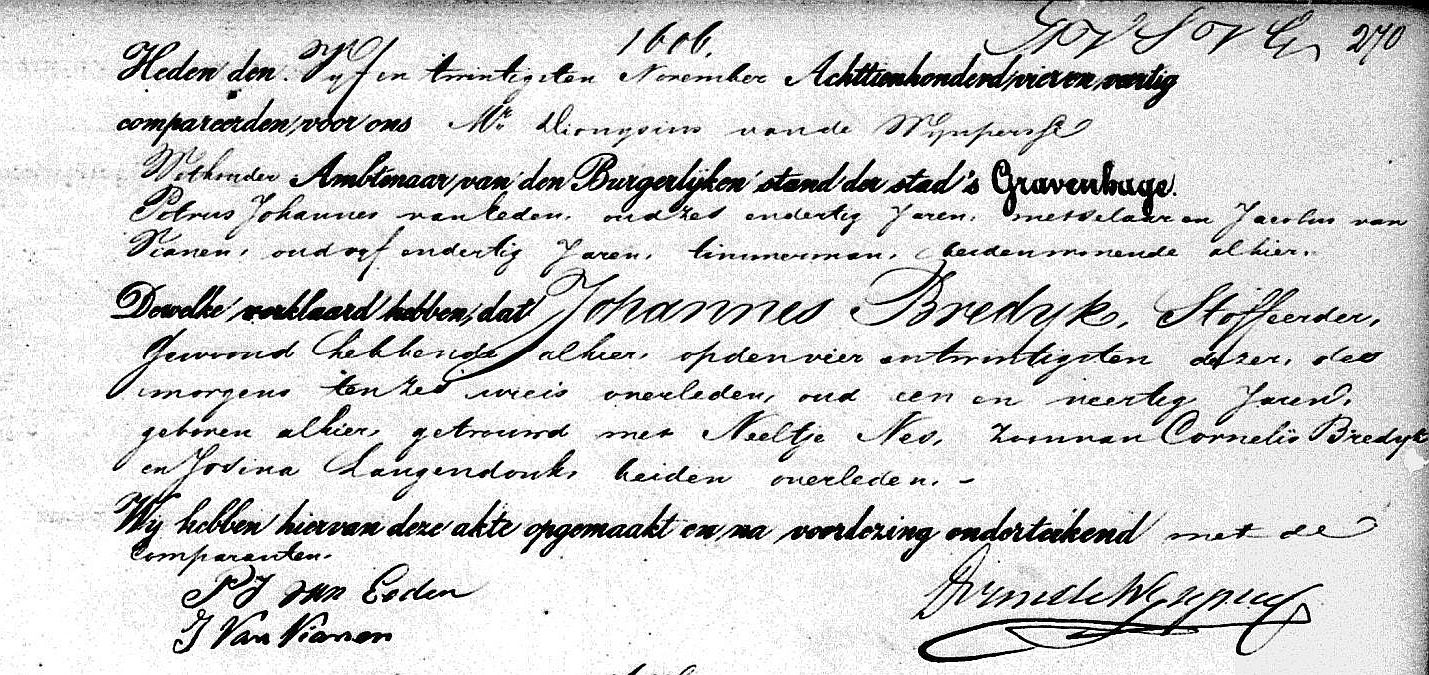 1606. 270
Heden den Vyf en twintigsten November Achttienhonderd vier en veertig
compareerden voor ons Mr. Dionysius van de Wynpersse
Wethouder Ambtenaar van den Burgerlyken stand der stad 's Gravenhage.
Petrus Johannes van Eeden, oud zes en dertig Jaren, metselaar en Jacobus van
Vianen, oud vyf en dertig Jaren, timmerman, beiden wonende alhier.
Dewelke verklaard hebben, dat Johannes Bredyk, Stoffeerder,
gewoond hebbende alhier, op den vier en twintigsten dezer, des
morgens ten zes ure is overleden, oud een en veertig Jaren,
geboren alhier, getrouwd met Neeltje Nes, zoon van Cornelis Bredyk
en Josina Langendonk, beiden overleden. -
Wy hebben hiervan deze akte opgemaakt en na voorlezing onderteekend met de
Comparanten.
P J van Eeden
J Van Vianen